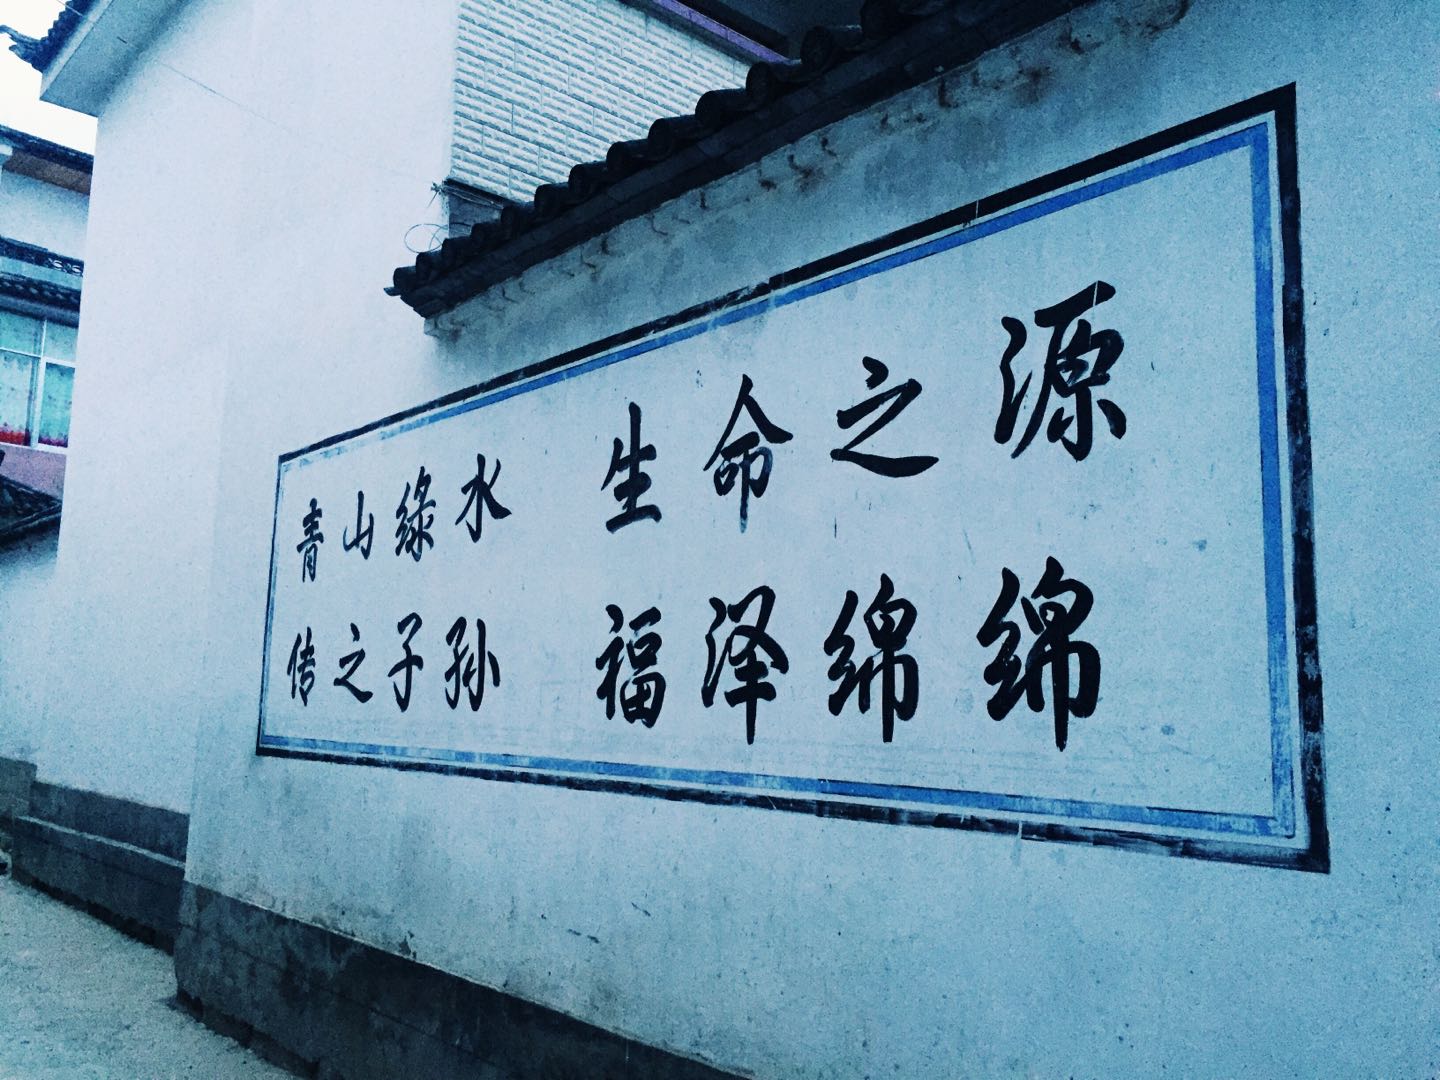 青山綠水 生命之源
传之子孙 福泽绵绵